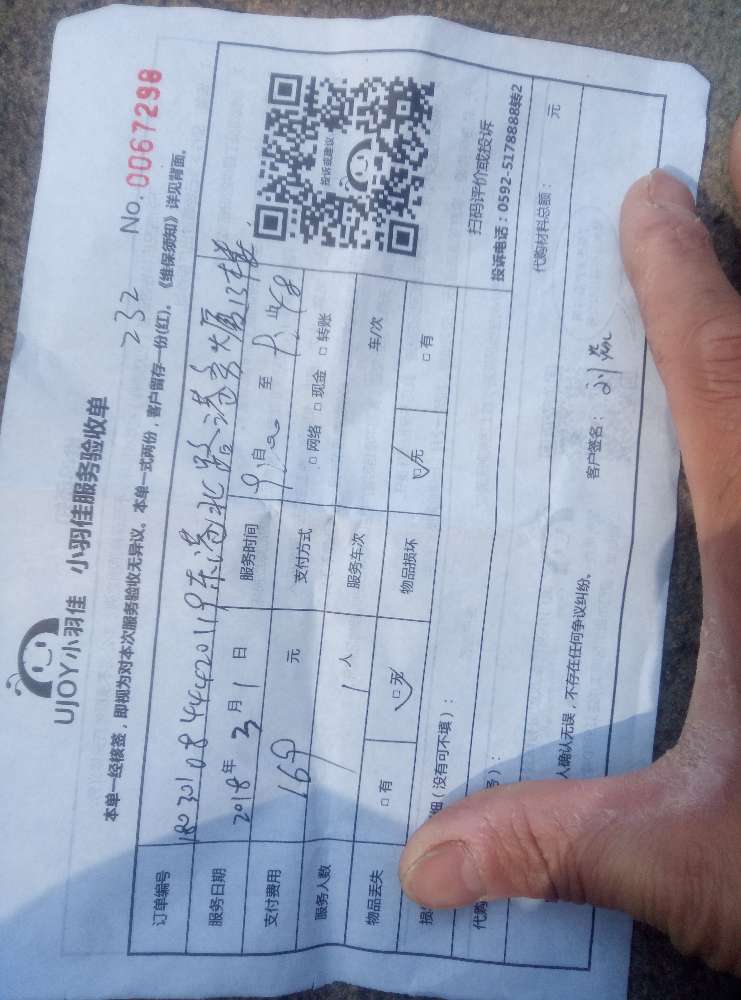 UJOY小羽佳 小羽佳服务验收单
232 No. 0067298
本单一经核签，即视为对本次服务验收无异议。本单一式两份，客户留存一份(红)。《维保须知》详见背面。
订单编号
服务日期 2018年 3月 1日 服务时间 自 至
支付费用 169 元 支付方式 □网络 □现金 □转账
服务人数 1 人 服务车次 车/次
物品丢失 □有 □无 物品损坏 □无 □有
投诉或建议
扫码评价或投诉
投诉电话：0592-5178888转2
细（没有可不填）：
代购
代购材料总额： 元
人确认无误，不存在任何争议纠纷。
客户签名：